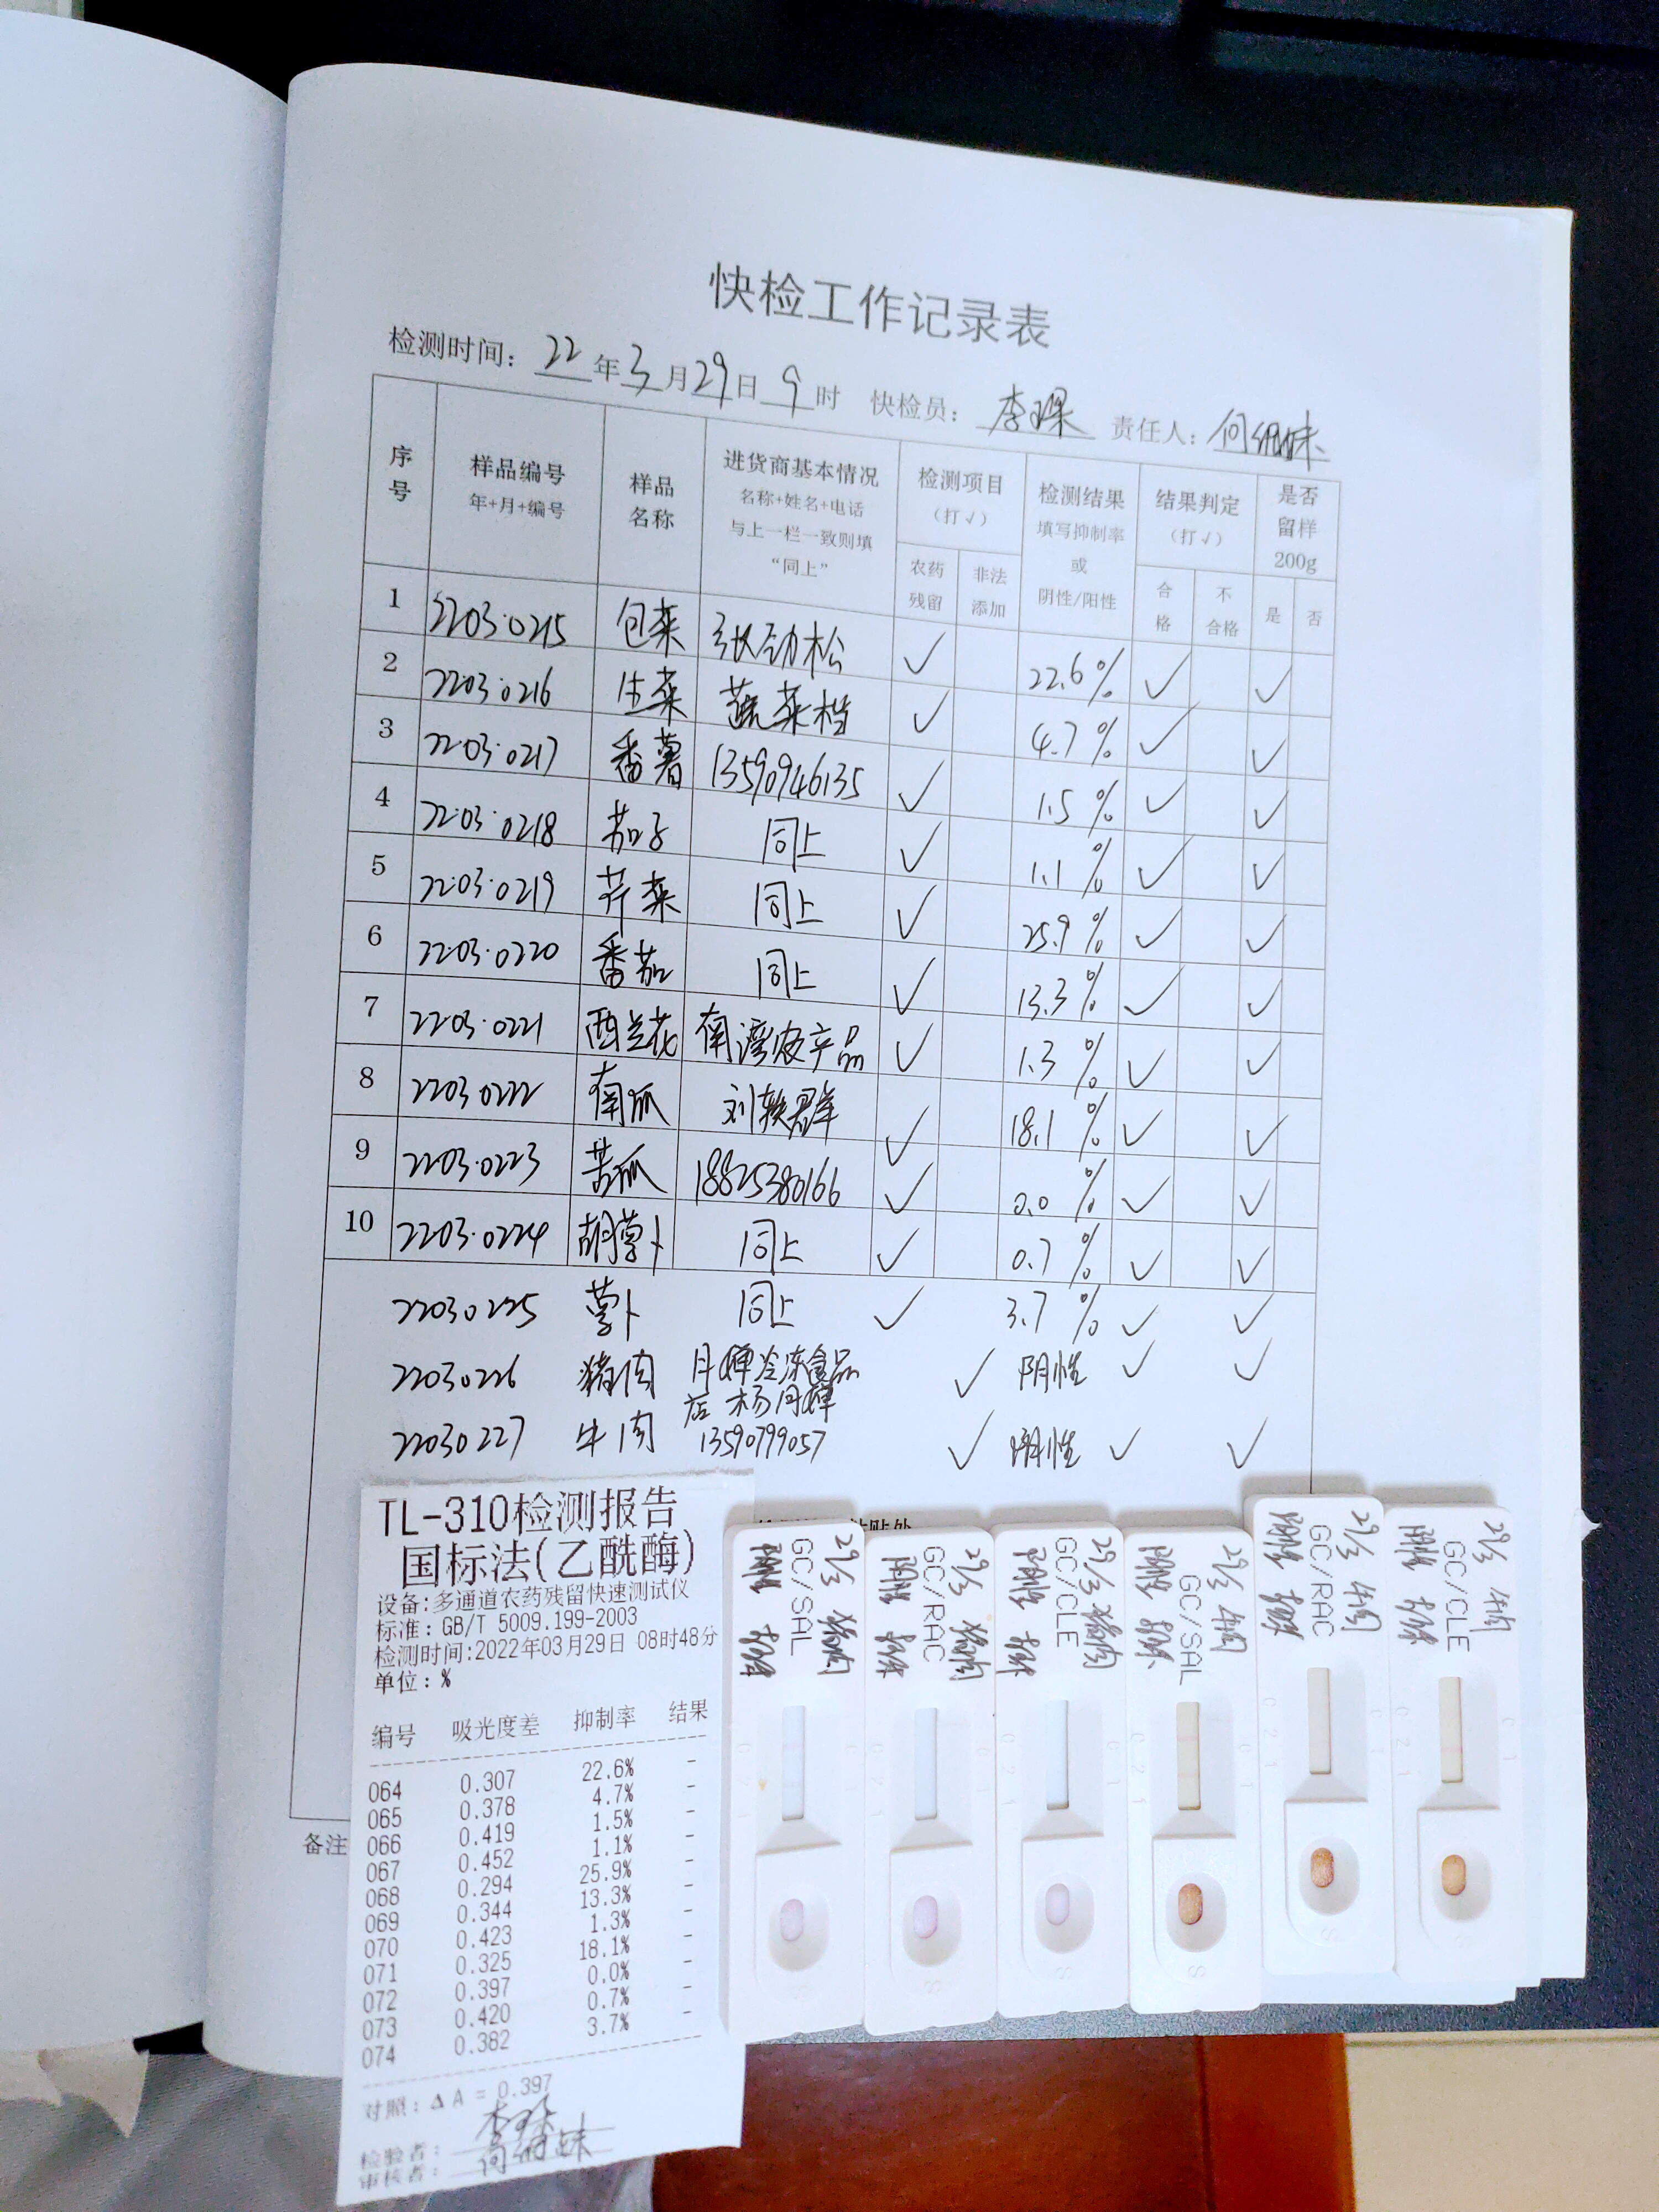 快检工作记录表
检测时间：22年3月29日9时 快检员：李琛 责任人：何细妹
序号 样品编号 年+月+编号 样品名称 进货商基本情况 名称+姓名+电话 与上一栏一致则填“同上” 检测项目（打√） 农药残留 非法添加 检测结果 填写抑制率或阴性/阳性 结果判定（打√） 合格 不合格 是否留样200g 是 否
1 2203·0215 包菜 张劲松 ✓ 22.6% ✓ ✓
2 2203·0216 生菜 蔬菜档 ✓ 4.7% ✓ ✓
3 2203·0217 番薯 13590946135 ✓ 1.5% ✓ ✓
4 2203·0218 茄子 同上 ✓ 1.1% ✓ ✓
5 2203·0219 芹菜 同上 ✓ 25.9% ✓ ✓
6 2203·0220 番茄 同上 ✓ 13.3% ✓ ✓
7 2203·0221 西兰花 南湾农产品 ✓ 1.3% ✓ ✓
8 22030222 南瓜 刘轶群 ✓ 18.1% ✓ ✓
9 2203·0223 苦瓜 18825380166 ✓ 0.0% ✓ ✓
10 2203·0224 胡萝卜 同上 ✓ 0.7% ✓ ✓
22030225 萝卜 同上 ✓ 3.7% ✓ ✓
22030226 猪肉 月婵冷冻食品店 杨月婵 ✓ 阴性 ✓ ✓
22030227 牛肉 13590799057 ✓ 阴性 ✓ ✓
粘贴处
备注
TL-310检测报告
国标法(乙酰酶)
设备:多通道农药残留快速测试仪
标准: GB/T 5009.199-2003
检测时间:2022年03月29日 08时48分
单位: %
编号 吸光度差 抑制率 结果
064 0.307 22.6% -
065 0.378 4.7% -
066 0.419 1.5% -
067 0.452 1.1% -
068 0.294 25.9% -
069 0.344 13.3% -
070 0.423 1.3% -
071 0.325 18.1% -
072 0.397 0.0% -
073 0.420 0.7% -
074 0.382 3.7% -
对照: Δ A = 0.397
检验者: 李琛
审核者: 何细妹
29/3 猪肉
GC/SAL
阴性
29/3 猪肉
GC/RAC
阴性
29/3 猪肉
GC/CLE
阴性
29/3 牛肉
GC/SAL
阴性
29/3 牛肉
GC/RAC
阴性
29/3 牛肉
GC/CLE
阴性